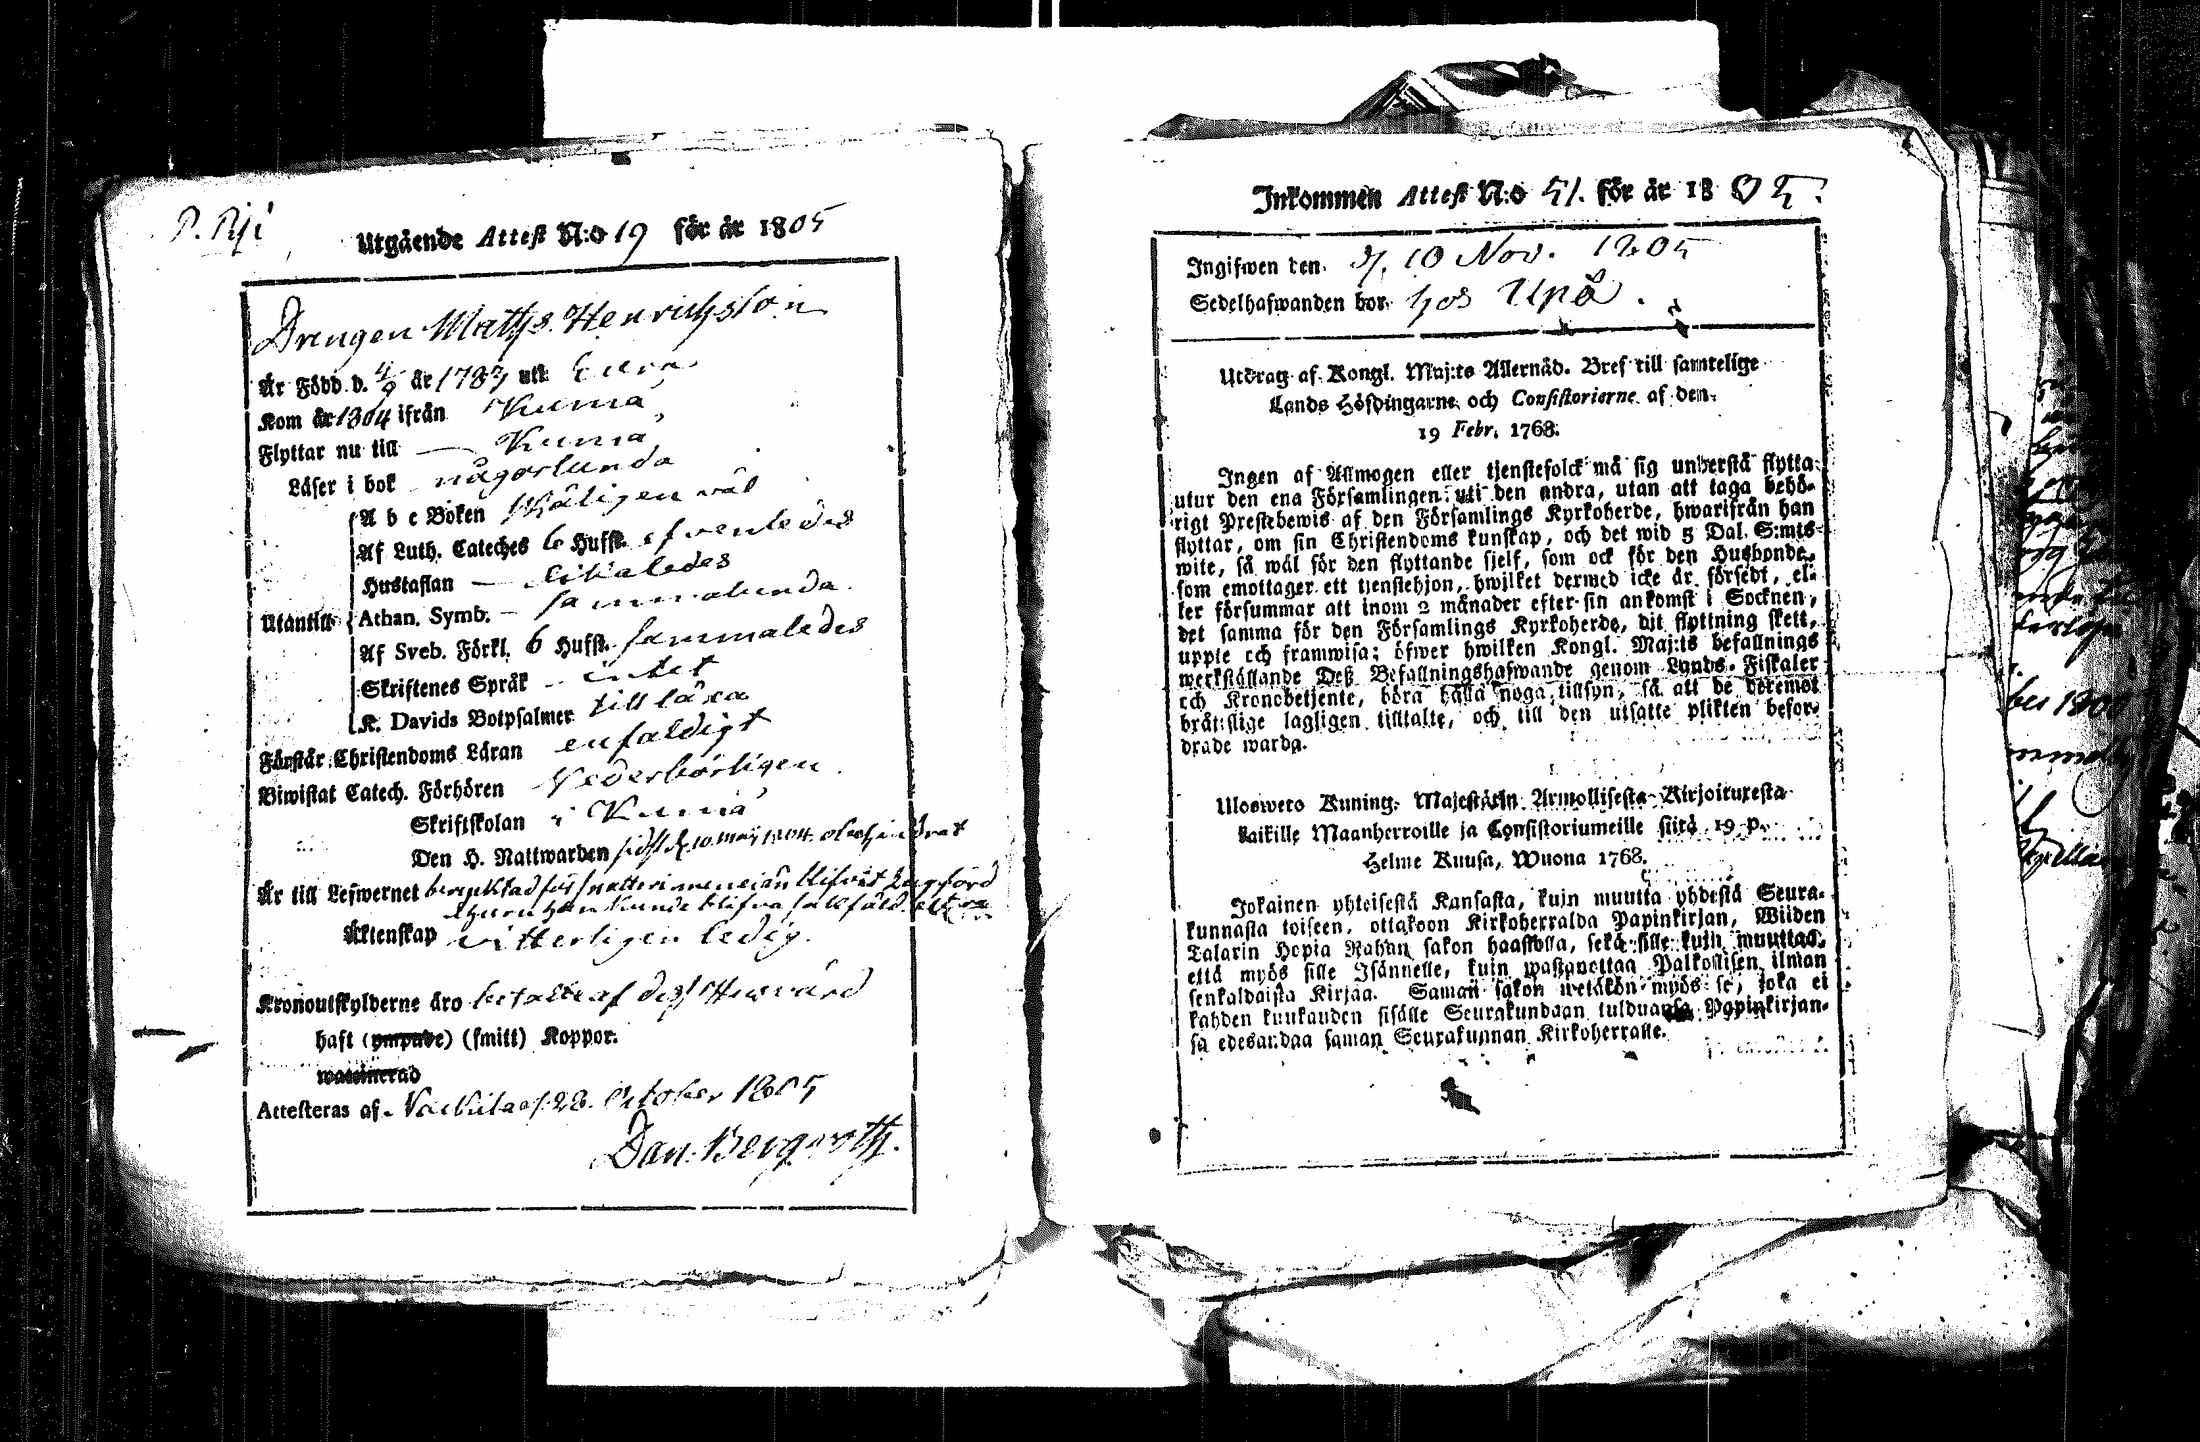 P. Pyi
Utgående Attest N:o 19 för år 1805
Drengen Matths Henrichsson
Är Född d. 4/9 år 1783 uti Eura
Kom år 1804 ifrån Kumå
Flyttar nu till — Kumå
Läser i bok någorlunda
Utantill
A b c Boken skäligen väl
Af Luth. Cateches 6 Hufst. efvenledes
Hustaflan — likaledes
Athan. Symb. — sammalunda
Af Sveb. Förkl. 6 Hufst. sammaledes
Skriftenes Språk - intet
K. Davids Botpsalmer till lära
Förstår Christendoms Läran enfaldigt
Biwistat Catech. Förhören Vederbörligen
Skriftskolan i Kumå
Den H. Nattwarden sidst d. 10 Maj 1804
Är till Lefwernet
Äktenskap vitterligen ledig.
Kronoutskylderne äro betalte af dess Husvärd
haft (ympade) (smitt) Koppor.
waccinerad
Attesteras af 28. October 1805
Dan. Bergroth.
Inkommen Attest N:o 51. för år 1805.
Ingifwen den d. 10 Nov. 1805
Sedelhafwanden bor hos Upå.
Utdrag af Kongl. Maj:ts Allernåd. Bref till samtelige
Lands Höfdingarne och Consistorierne af den
19 Febr. 1768.
Ingen af Allmogen eller tjenstefolck må sig understå flytta
utur den ena Församlingen uti den andra, utan att taga behö-
rigt Prestebewis af den Församlings Kyrkoherde, hwarifrån han
flyttar, om sin Christendoms kunskap, och det wid 5 Dal. S:mts
wite, så wäl för den flyttande sjelf, som ock för den Husbonde,
som emottager ett tjenstehjon, hwilket dermed icke är försedt, el-
ler försummar att inom 2 månader efter sin ankomst i Socknen,
det samma för den Församlings Kyrkoherde, dit flyttning skett,
uppte och framwisa; öfwer hwilken Kongl. Maj:ts befallnings
werkställande Deß Befallningshafwande genom Lands-Fiskaler
och Kronobetjente, böra hålla noga tillsyn, så att de deremot
brättslige lagligen tilltalte, och till den utsatte plikten befor-
drade warda.
Ulosweto Kuning. Majestätin Armollisesta Kirjoituxesta
kaikille Maanherroille ja Consistoriumeille siitä 19 p.
Helme Kuusa, Wuona 1768.
Jokainen yhteisestä Kansasta, kuin muutta yhdestä Seura-
kunnasta toiseen, ottakoon Kirkoherralda Papinkirjan, Wiiden
Talarin Hopia Rahan sakon haastolla, sekä sille kuin muuttaa,
että myös sille Isännelle, kuin wastanottaa Palkollisen ilman
senkaldaista Kirjaa. Saman sakon wetäkön myös se, joka ei
kahden kuukauden sisälle Seurakundaan tulduansa Papinkirjan-
sa edesandaa saman Seurakunnan Kirkoherralle.